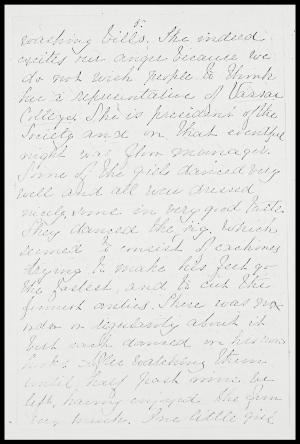 5.
washing bills. She indeed
excites our anger because we
do not wish people to think
her a representative of Vassar
College. She is president of the
Society and on that eventful
night was floor manager.
Some of the girls danced very
well and all were dressed
nicely, some in very good taste.
They danced the jig, which
seemed to consist of each ones
trying to make his feet go
the fastest, and to cut the
funniest antics. There was no
order or regularity about it
but each danced on his own
hook. After watching them
until half past nine, we
left, having enjoyed the fun
very much. One little girl